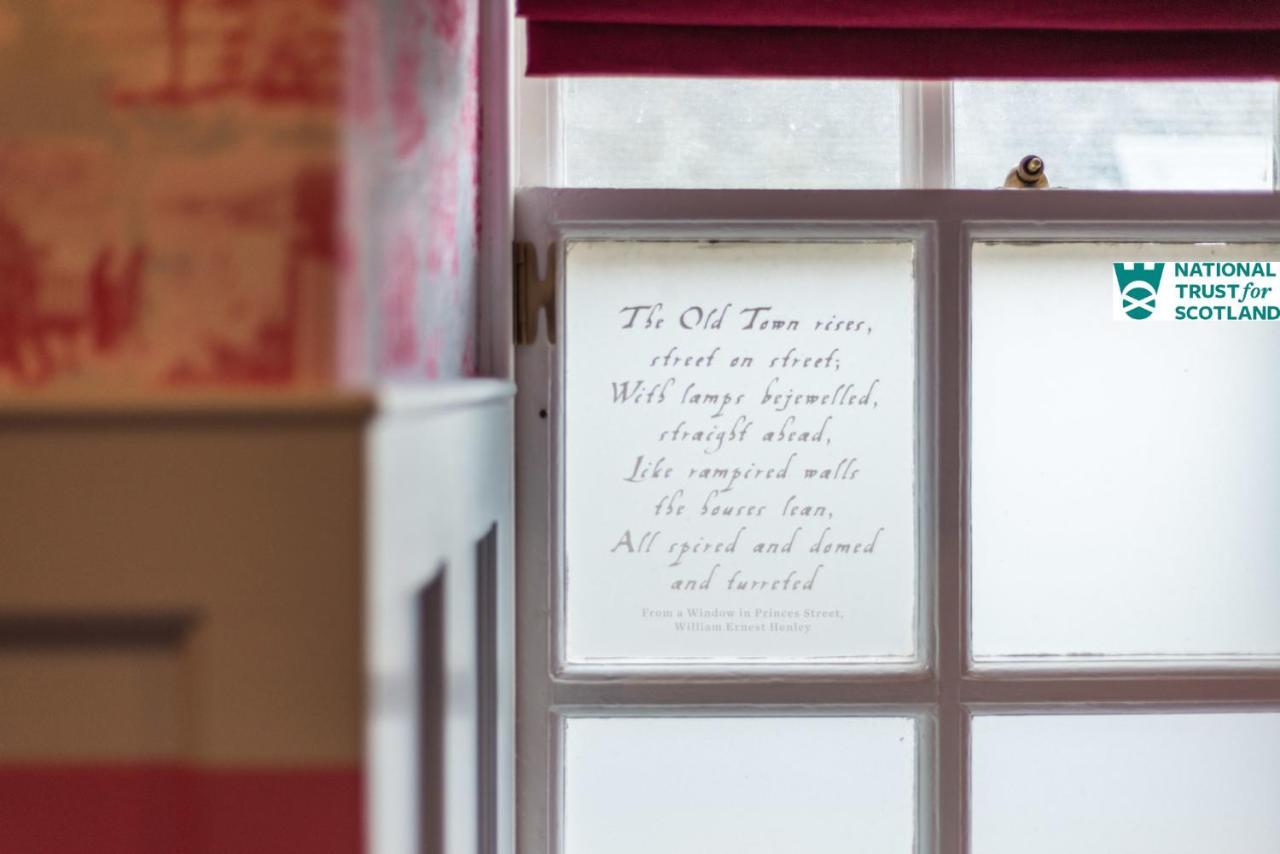 The Old Town rises,
street on street;
With lamps bejewelled,
straight ahead,
Like rampired walls
the houses lean,
All spired and domed
and turreted
From a Window in Princes Street,
William Ernest Henley
NATIONAL
TRUST for
SCOTLAND